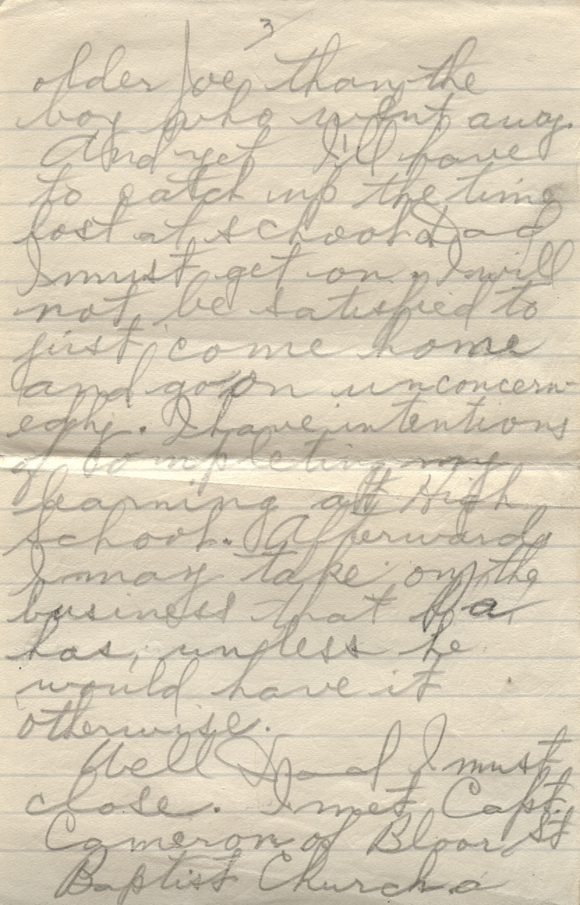 3
older Joe than the
boy who went away.
And yet I'll have
to catch up the time
lost at school Dad
I must get on. I will
not be satisfied to
just come home
and go on unconcern-
edly. I have intentions
of completing my
learning at High
School. Afterwards
I may take on the
business that Pa
has, unless he
would have it
otherwise.
Well Dad I must
close. I met Capt.
Cameron of Bloor St
Baptist Church a